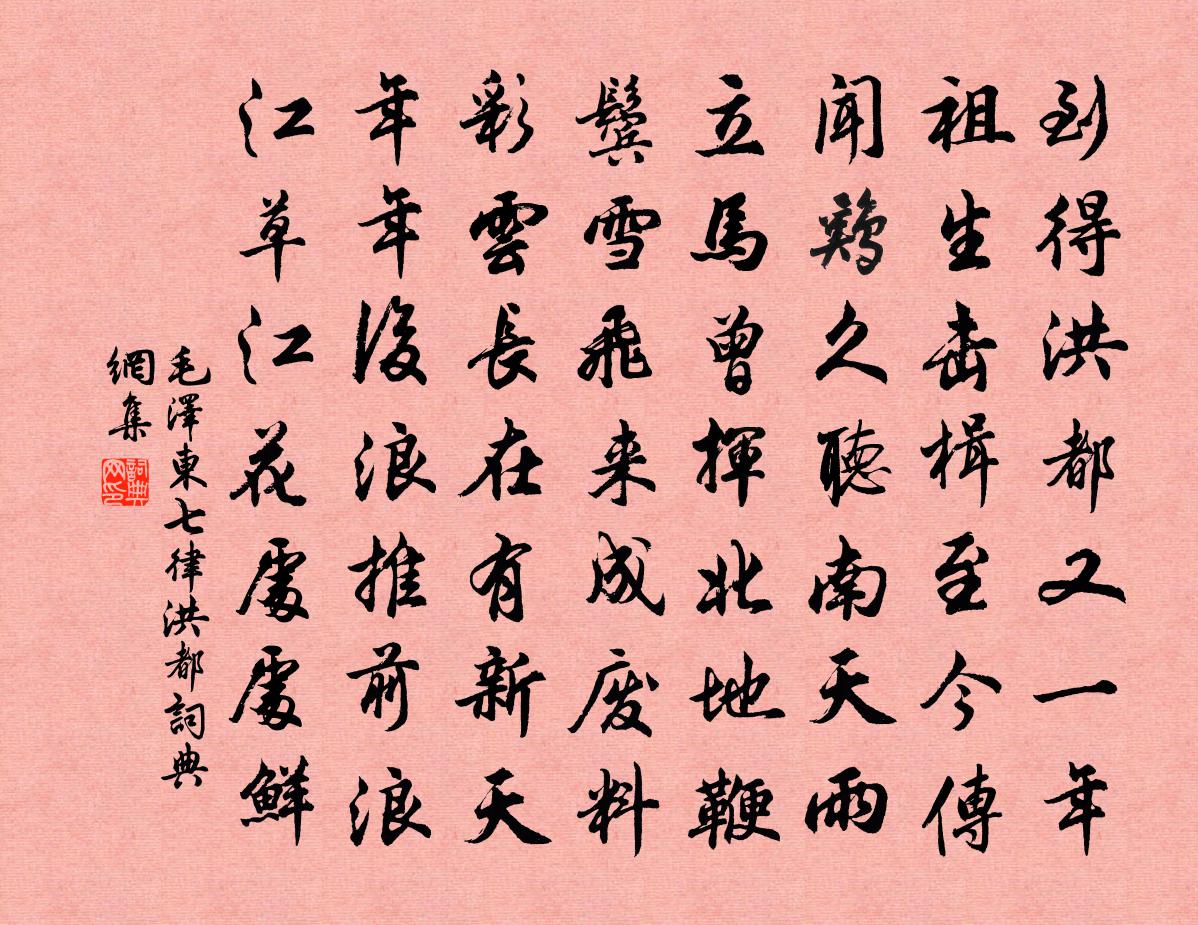 到得洪都又一年
祖生击楫至今傳
闻鷄久聽南天雨
立馬曾揮北地鞭
鬓雪飛来成废料
彩雲長在有新天
年年後浪推前浪
江草江花處處鮮
毛澤東七律洪都詞典
網集
詞典
网印